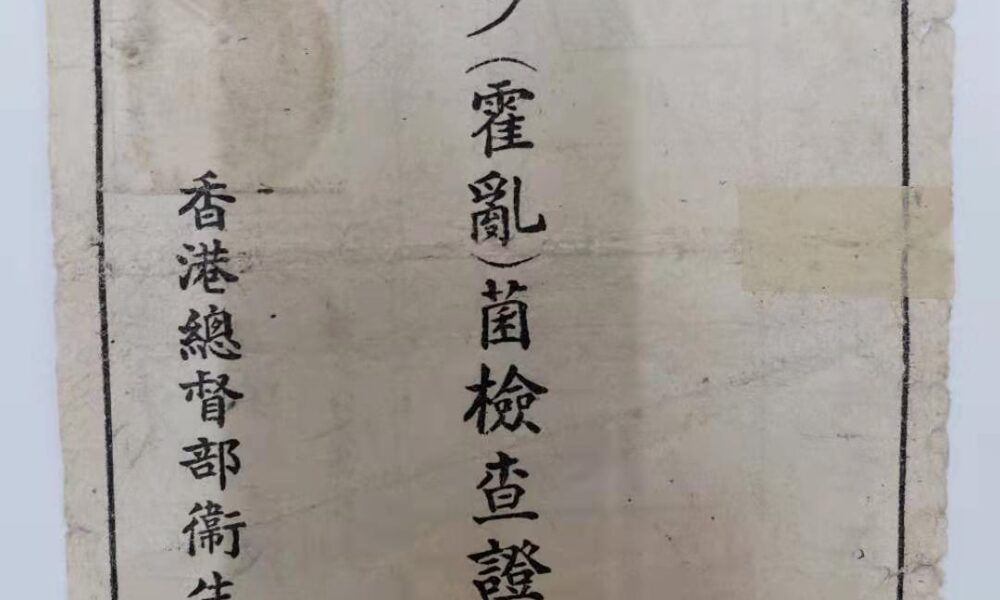 (霍亂)菌檢查證
香港總督部衞生